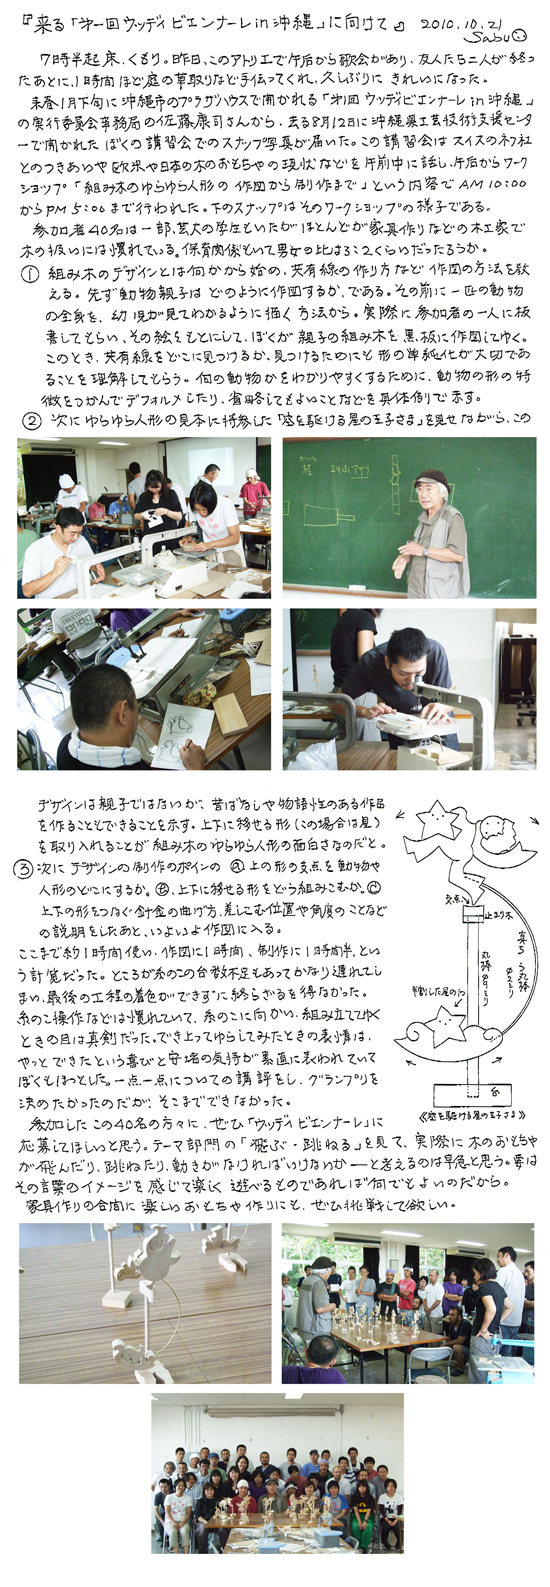 『来る「第一回ウッディビエンナーレin沖縄」に向けて』 2010.10.21
Sabu
7時半起床、くもり。昨日、このアトリエで午后から歌会があり、友人たち二人が終っ
たあとに、1時間ほど庭の草取りなど手伝ってくれ、久しぶりに きれいになった。
来春1月下旬に沖縄市のプラザハウスで開かれる「第1回 ウッディビエンナーレ in 沖縄」
の実行委員会事務局の佐藤康司さんから、去る8月12日に沖縄県工芸技術支援センタ
ーで開かれた ぼくの講習会でのスナップ写真が届いた。この講習会はスイスのネフ社
とのつきあいや 欧米や日本の木のおもちゃの現状などを午前中に話し、午后からワーク
ショップ「組み木のゆらゆら人形の 作図から制作まで」という内容で AM 10:00
から PM 5:00 まで行われた。下のスナップはそのワークショップの様子である。
参加者40名は一部、芸大の学生もいたがほとんどが家具作りなどの木工家で
木の扱いには慣れている。保育関係もいて男女の比は3:2くらいだったろうか。
① 組み木のデザインとは何かから始め、共有線の作り方など 作図の方法を教
える。先ず動物親子は どのように作図するか、である。その前に一匹の動物
の全身を、幼児が見てわかるように描く方法から。実際に参加者の一人に板
書してもらい、その絵をもとにして、ぼくが親子の組み木を黒板に作図してゆく。
このとき、共有線をどこに見つけるか、見つけるためにも形の単純化が大切であ
ることを理解してもらう。何の動物かをわかりやすくするために、動物の形の特
徴をつかんでデフォルメしたり、省略してもよいことなどを具体例で示す。
② 次にゆらゆら人形の見本に持参した「空を駆ける星の王子さま」を見せながら、この
デザインは親子ではないが、昔ばなしや物語性のある作品
を作ることもできることを示す。上下に移せる形(この場合は星)
を取り入れることが組み木のゆらゆら人形の面白さなのだと。
③ 次に デザインの制作のポイントの Ⓐ上の形の支点を動物や
人形のどこにするか。Ⓑ、上下に移せる形をどう組みこむか。Ⓒ
上下の形をつなぐ針金の曲げ方、差しこむ位置や角度のことなど
の説明をしたあと、いよいよ作図に入る。
ここまで約1時間使い、作図に1時間、制作に1時間半、とい
う計算だった。ところが糸のこの台数不足もあってかなり遅れてし
まい、最後の工程の着色ができずに終らざるを得なかった。
糸のこ操作などは慣れていて、糸のこに向かい、組み立ててゆく
ときの目は真剣だった。でき上ってゆらしてみたときの表情は、
やっとできたという喜びと安堵の気持が素直に表われていて
ぼくもほっとした。一点一点についての講評をし、グランプリを
決めたかったのだが、そこまでできなかった。
参加したこの40名の方々に、ぜひ「ウッディ ビエンナーレ」に
応募してほしいと思う。テーマ部門の「飛ぶ・跳ねる」を見て、実際に木のおもちゃ
が飛んだり、跳ねたり、動きがなければいけないか ― と考えるのは早急と思う。要は
その言葉のイメージを感じて楽しく遊べるものであれば何でもよいのだから。
家具作りの合間に楽しいおもちゃ作りにも、ぜひ挑戦して欲しい。
支点
止まり木
丸棒 φ9ミリ
台
《空を駆ける星の王子さま》